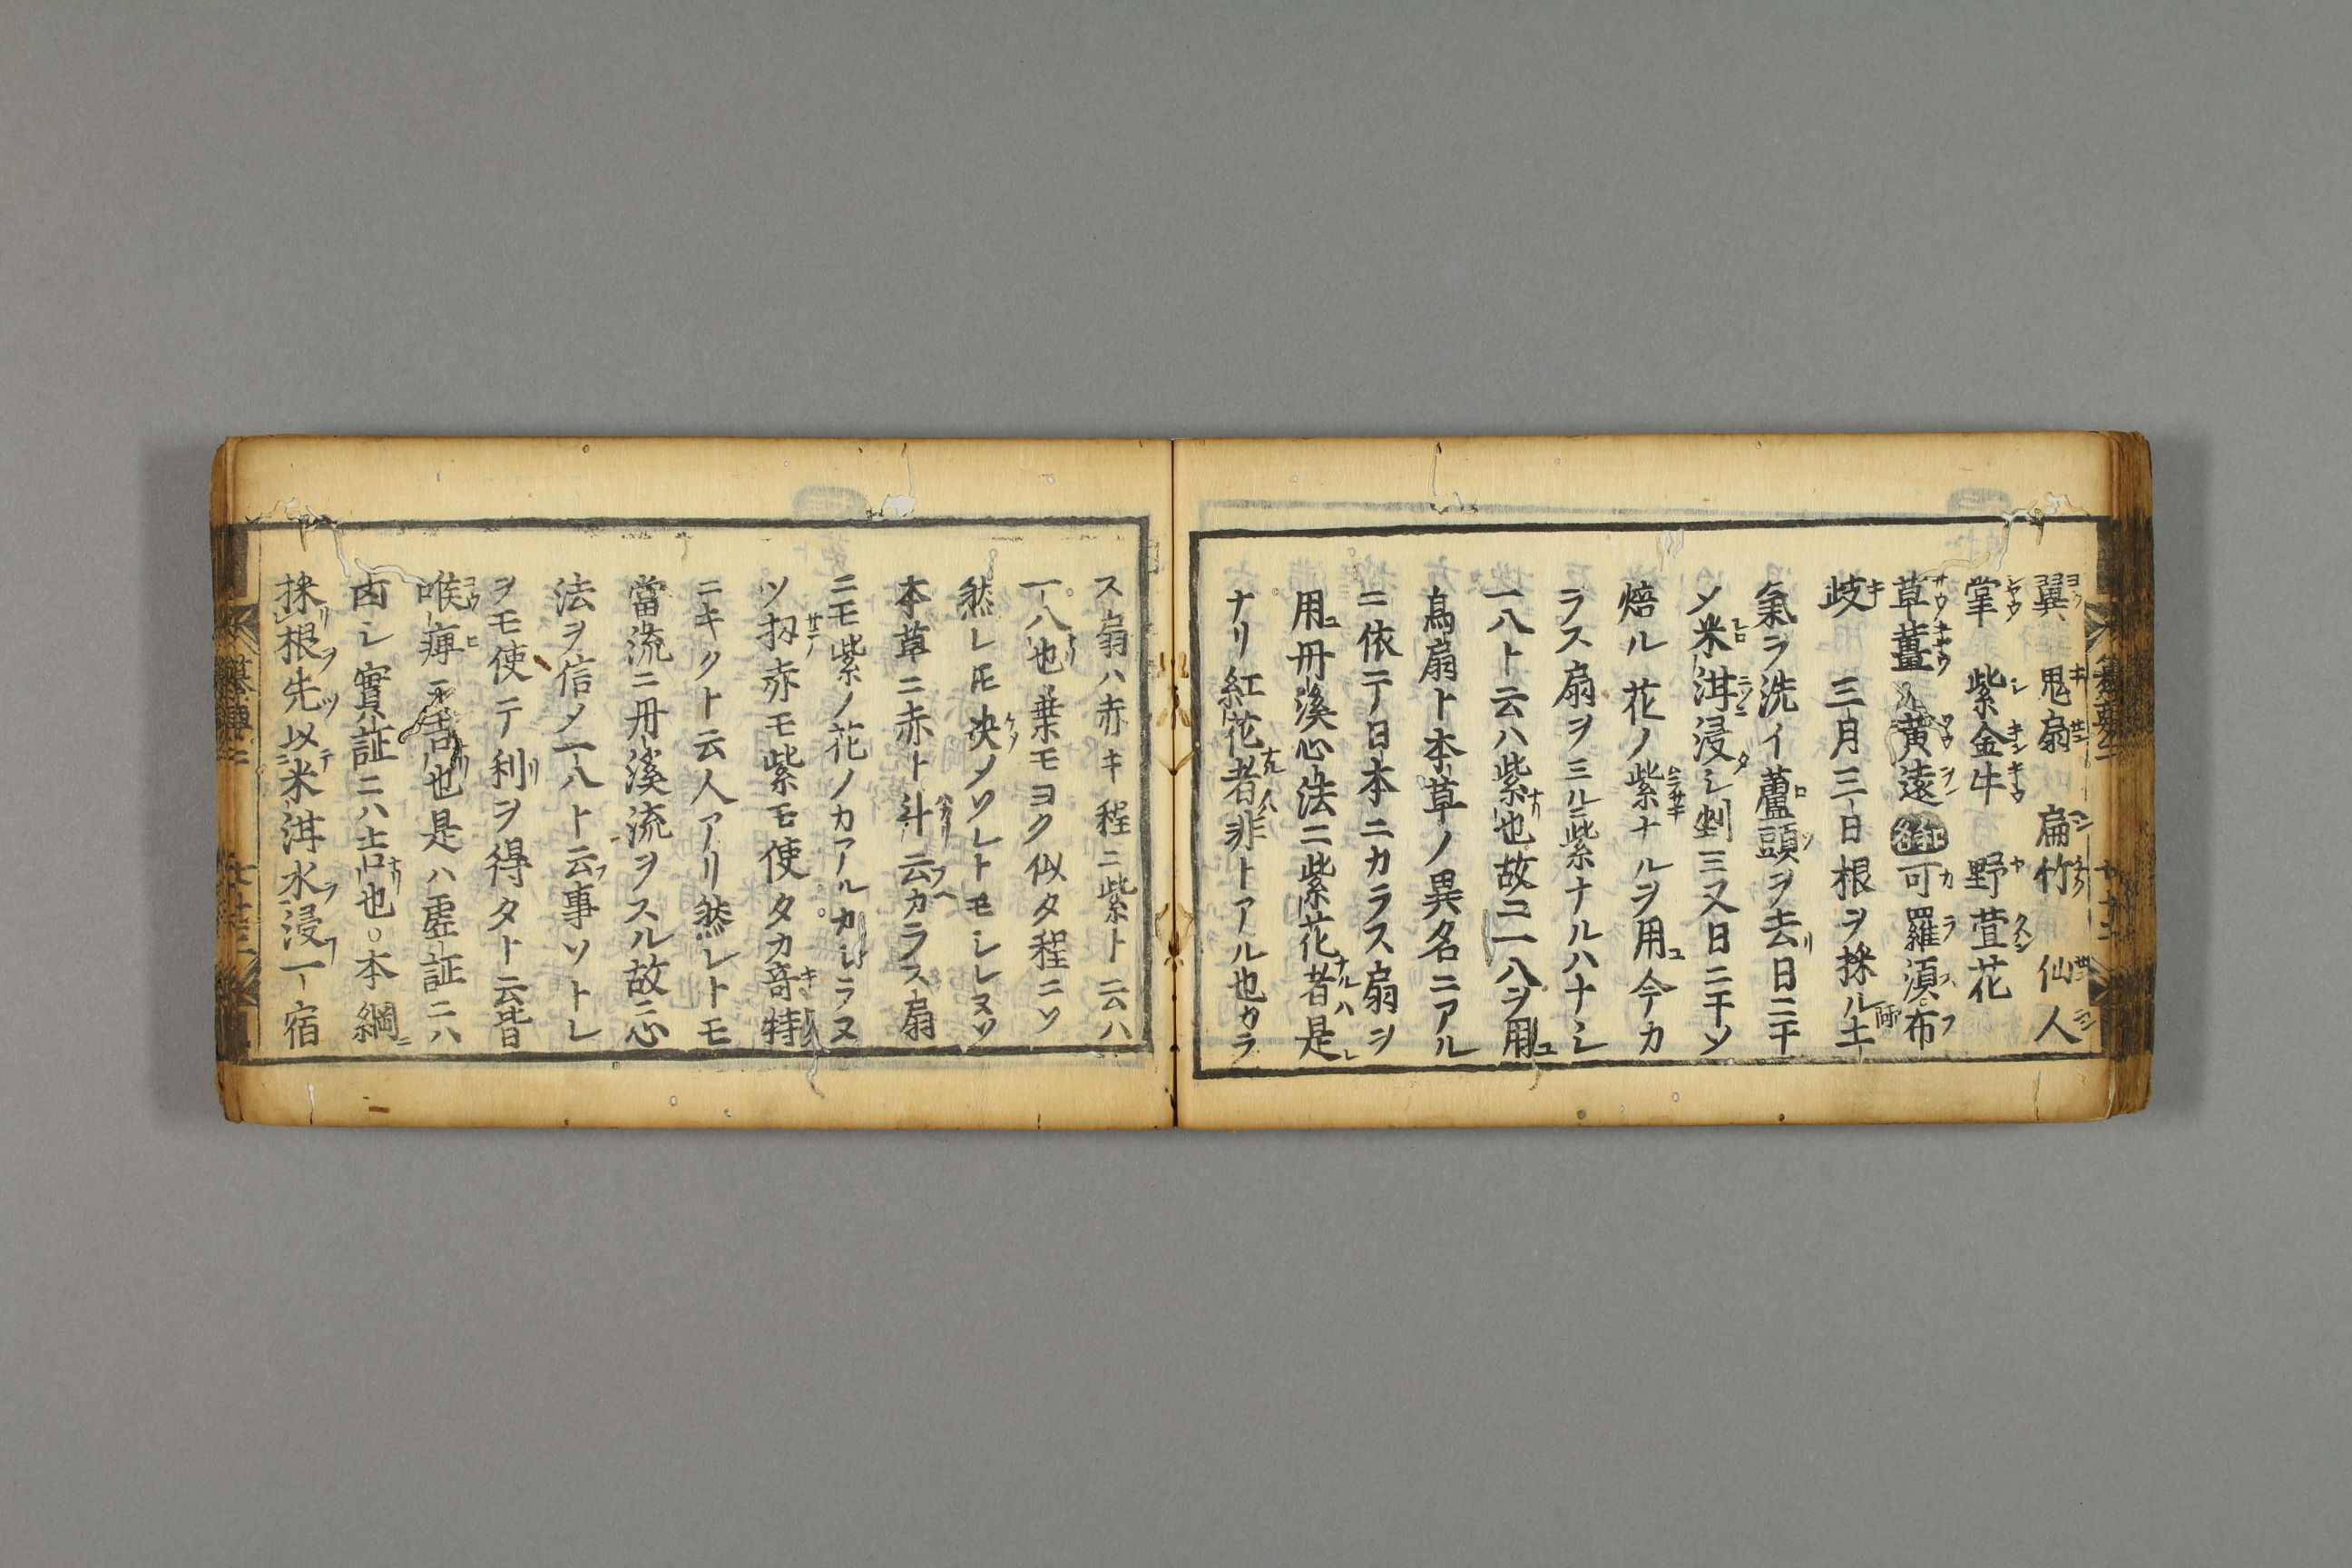 翼 鬼扇 扁竹 仙人
掌 紫金牛 野萱花
草薑 黄遠 可羅湏布
歧 三月三日根ヲ採ル土
氣ヲ洗イ蘆頭ヲ去日ニ干
〆米泔浸シ剉三又日ニ干〆
焙ル花ノ紫ナルヲ用今カ
ラス扇ヲ三ルニ紫ナルハナシ
一八ト云ハ紫也故ニ一八ヲ用
烏扇ト本草ノ異名ニアル
ニ依テ日本ニカラス扇ヲ
用丹溪心法ニ紫花者是
ナリ紅花者非トアル也カラ
ス扇ハ赤キ程ニ紫ト云ハ
一八也葉モヨク似タ程ニソ
然レ𪜈决〆ソレトモシレヌソ
本草ニ赤ト斗云カラス扇
ニモ紫ノ花ノカアルカシラヌ
ソ扨赤モ紫モ使タカ竒特
ニキクト云人アリ然レトモ
當流ニ丹溪流ヲスル故ニ心
法ヲ信〆一八ト云事ソトレ
ヲモ使テ利ヲ得タト云皆
喉痺 也是ハ虚証ニハ
凶シ實証ニハ吉也○本綱
採根先以米泔水浸一宿